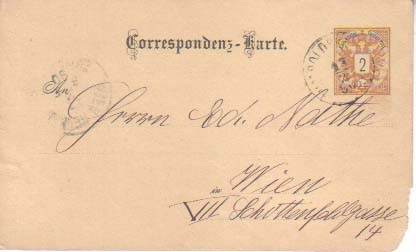 Correspondenz-Karte.
2
An
Herrn Ed. Nathe
in Wien
VII Schottenfeldgasse
14